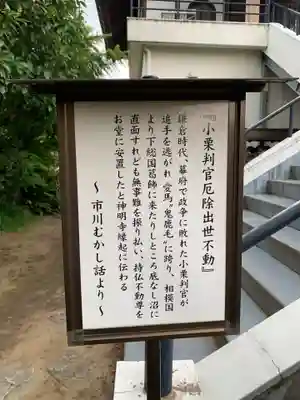 『小栗判官厄除出世不動』
鎌倉時代、幕府で政争に敗れた小栗判官が
追手を逃がれ愛馬"鬼鹿毛"に跨り、相模国
より下総国葛飾に来たりしところ底なし沼に
直面すれども無事難を振り払い、持仏不動尊を
お堂に安置したと神明寺縁起に伝わる
〜市川むかし話より〜